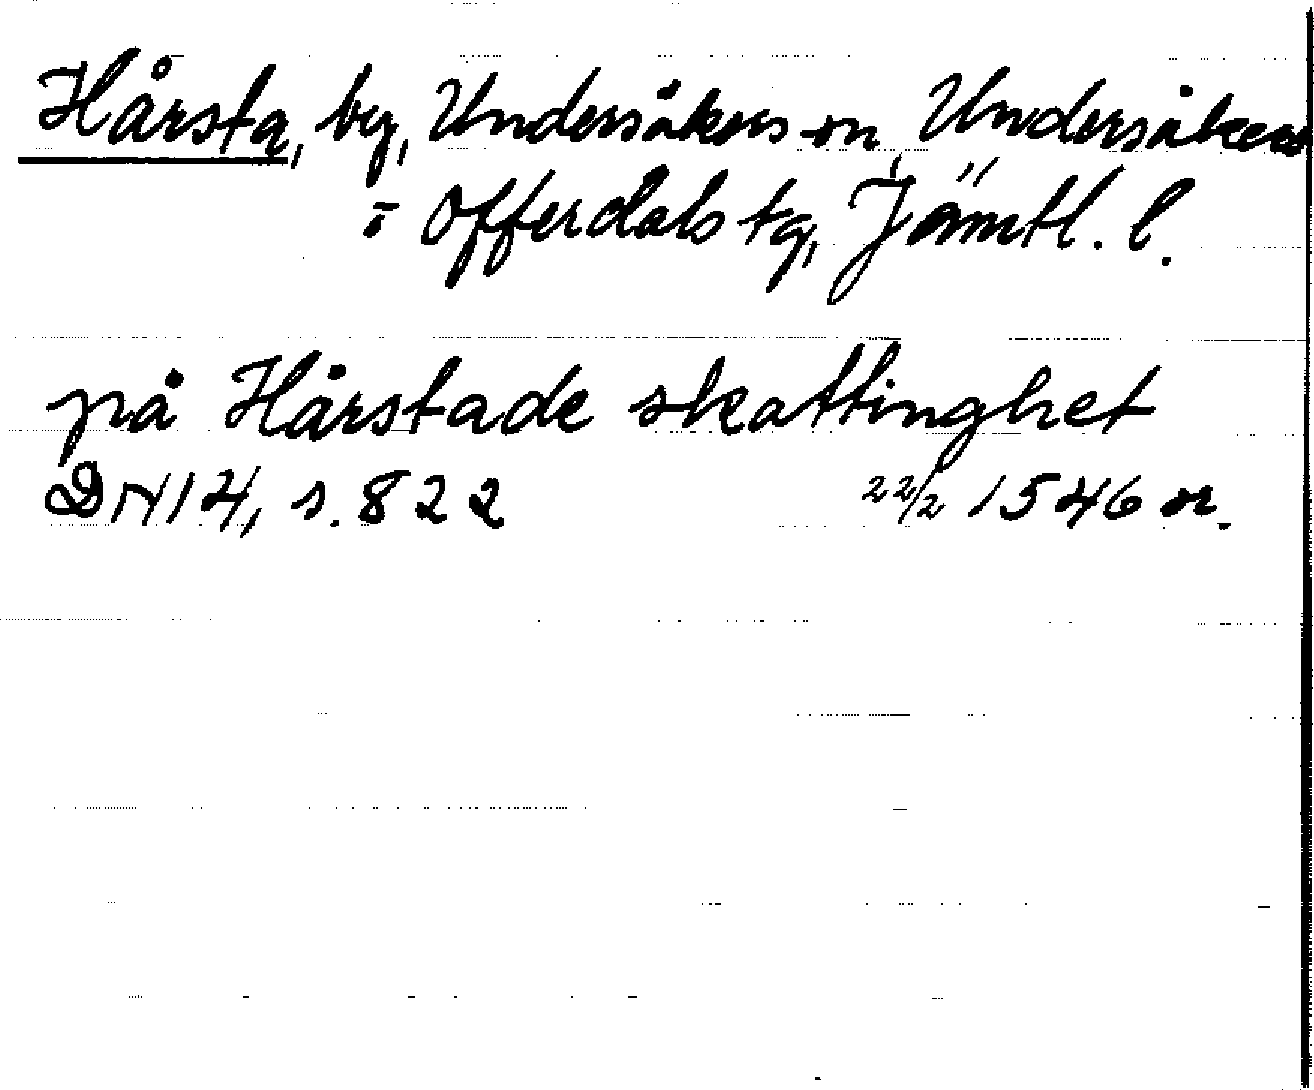 Hårsta, by, Undersåkers sn, Undersåkers
o Offerdals tg, Jämtl. l.
på Hårstade skattinghet
DN 14, s. 822 22/2 1546 or.